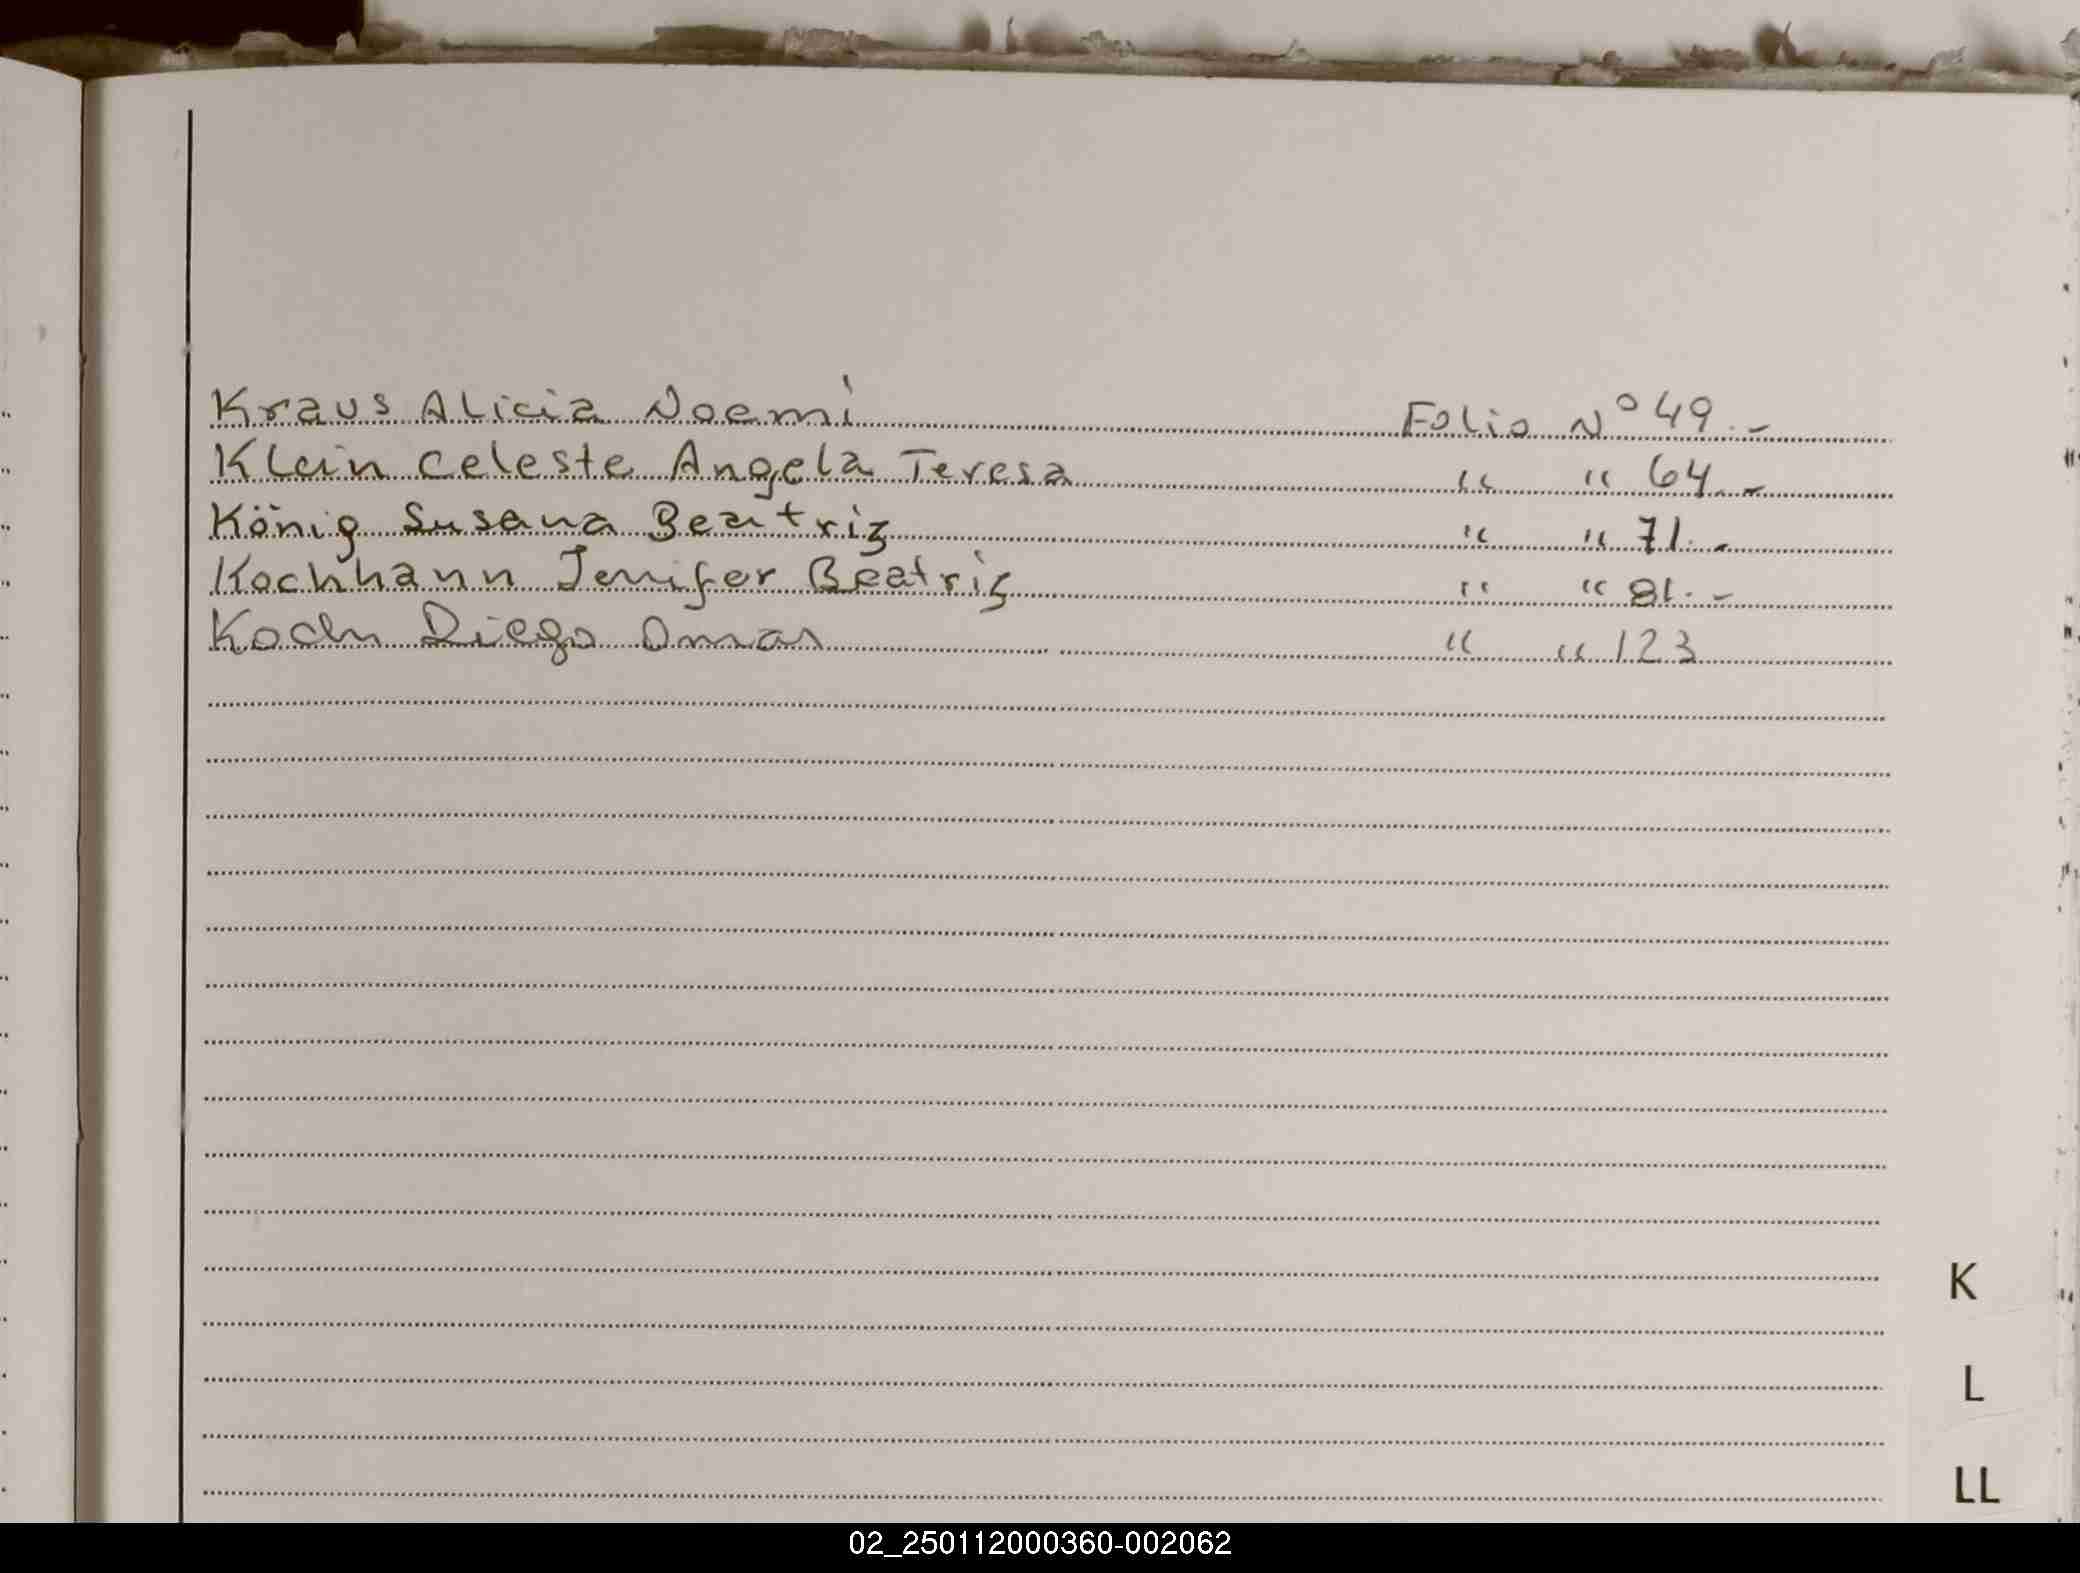 Kraus Alicia Noemí Folio Nº 49.-
Klein Celeste Angela Teresa " " 64.-
König Susana Beatriz " " 71.-
Kochhann Jenifer Beatriz " " 81.-
Koch Diego Omar " " 123
K
L
LL
02_250112000360-002062